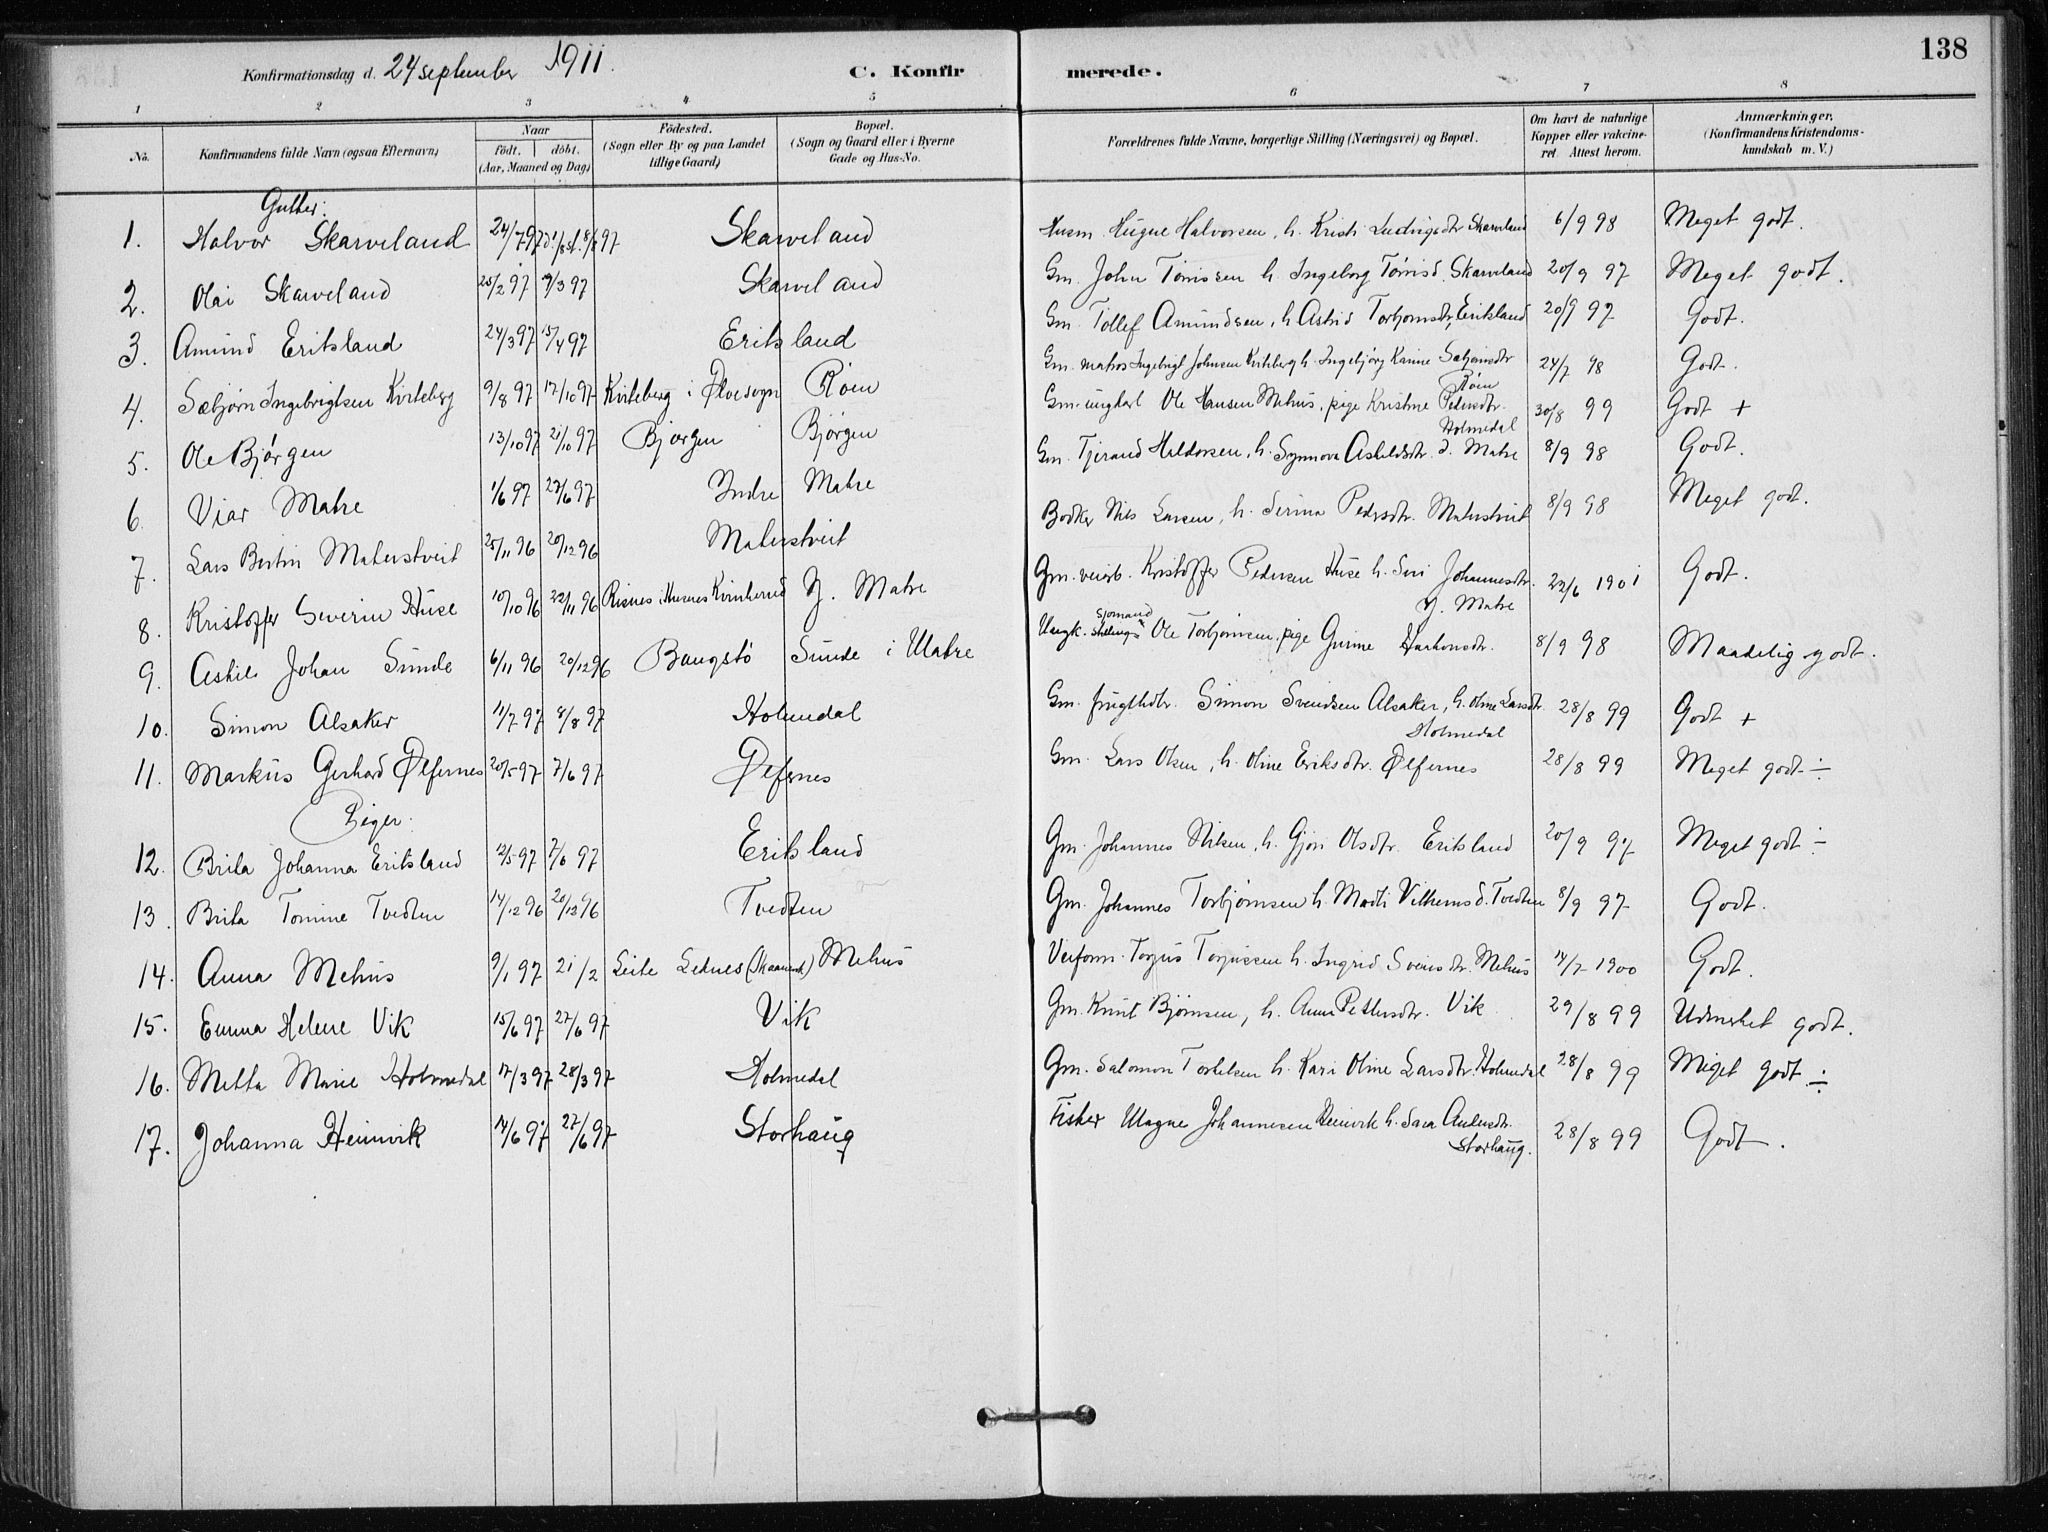 138
Konfirmationsdag d. 24 september 1911.
C. Konfirmerede.
1 2 3 4 5 6 7 8
No.
Konfirmandens fulde Navn (ogsaa Efternavn)
Naar
födt. döbt.
(Aar, Maaned og Dag)
Födested.
(Sogn eller By og paa Landet
tillige Gaard)
Bopæl.
(Sogn og Gaard eller i Byerne
Gade og Hus-No.
Forældrenes fulde Navne, borgerlige Stilling (Næringsvei) og Bopæl.
Om havt de naturlige
Kopper eller vakcine-
ret. Attest herom.
Anmærkninger.
(Konfirmandens Kristendoms-
kundskab m. V.)
Gutter:
1. Halvor Skarveland 24/7 97 Skarveland Husm. Halvorsen, h. Kristi Ludvigsdtr Skarveland 6/9 98 Meget godt.
2. Olai Skarveland 25/2 97 /3 97 Skarveland Gm. John Tönissen h. Ingeborg Tönisd. Skarveland 20/9 97 Meget godt.
3. Amund Eriksland 24/3 97 15/4 97 Eriksland Gm. Tollef Amundsen, h. Astrid Torbjornsdtr, Eriksland 20/9 97 Godt.
4. Sæbjörn Ingebrigtsen Kviteberg 9/8 97 17/10 97 Kviteberg i Ølvesogn Röen Gm. matros Ingebrigt Johnsen Kviteberg h. Ingebjörg Karine Sæbjörnsdtr Röen 24/7 98 Godt.
5. Ole Bjørgen 13/10 97 21/10 97 Bjørgen Bjørgen Gm. ungkarl Ole Hansen Mehus, pige Kristine Pedersdtr. Holmedal 30/8 99 Godt +
6. Viar Matre 1/6 97 27/6 97 Indre Matre Gm. Tjerand Haldorsen, h. Synnova Askildsdtr. I. Matre 8/9 98 Godt.
7. Lars Bertin Materstveit 25/11 96 20/12 96 Materstveit Bödker Nils Larsen, h. Serina Pedersdtr. Materstveit 8/9 98 Meget godt.
8. Kristoffer Severin Huse 10/10 96 22/11 96 Risnes i Husnes Kvinherred Y. Matre Gm. Kristoffer Pedersen Huse h. Siri Johannesdtr. Y. Matre 22/6 1901 Godt.
9. Askil Johan Sunde 6/11 96 20/12 96 Baugstö Sunde i Matre Ungk. Sjömand Ole Torbjörnsen, pige Gurine Haakonsdtr. 8/9 98 Maadelig godt.
10. Simon Alsaker 11/7 97 8/8 97 Holmedal Gm. Simon Svendsen Alsaker, h. Oline Larsdtr. Holmedal 28/8 99 Godt +
11. Markus Gerhard Ølfernes 20/5 97 7/6 97 Ølfernes Gm. Lars Olsen, h. Oline Eriksdtr. Ølfernes 28/8 99 Meget godt ÷
Piger:
12. Brita Johanna Eriksland 12/5 97 7/6 97 Eriksland Gm. Johannes Nilsen, h. Gjöri Olsdtr. Eriksland 20/9 97 Meget godt ÷
13. Brita Tomine Tvedten 14/12 96 20/12 96 Tvedten Gm. Johannes Torbjörnsen h. Marti Vilhemsd. Tvedten 8/9 97 Godt.
14. Anna Mehus 9/1 97 21/2 Leite Mehus Veiform. Torjus Torjussen h. Ingrid Sveinsdtr. Mehus 14/7 1900 Godt.
15. Emma Helene Vik 15/6 97 27/6 97 Vik Gm. Knut Björnsen, h. Anna Pettersdtr. Vik 29/8 99 Udmerket godt.
16. Metta Marie Holmedal 17/3 97 28/3 97 Holmedal Gm. Salomon Torkelsen h. Kari Oline Larsdtr. Holmedal 28/8 99 Meget godt ÷
17. Johanna Heimvik 14/6 97 27/6 97 Storhaug Fisker Magne Johannesen Heimvik h. Sara Andersdtr. Storhaug. 28/8 99 Godt.